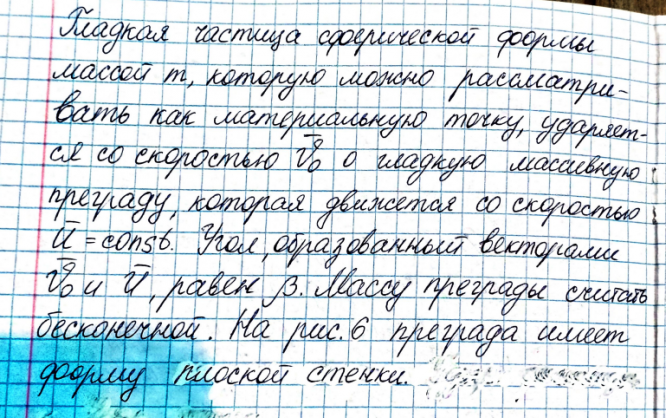 Гладкая частица сферической формы
массой m, которую можно рассматри-
вать как материальную точку, ударяет-
ся со скоростью v⃗₀ о гладкую массивную
преграду, которая движется со скоростью
u⃗ = const. Угол, образованный векторами
v⃗₀ и u⃗, равен β. Массу преграды считать
бесконечной. На рис. 6 преграда имеет
форму плоской стенки.